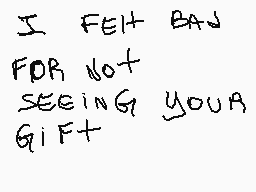 I FElt BAD
FOR Not
SEEiNG YOUR
GiFt